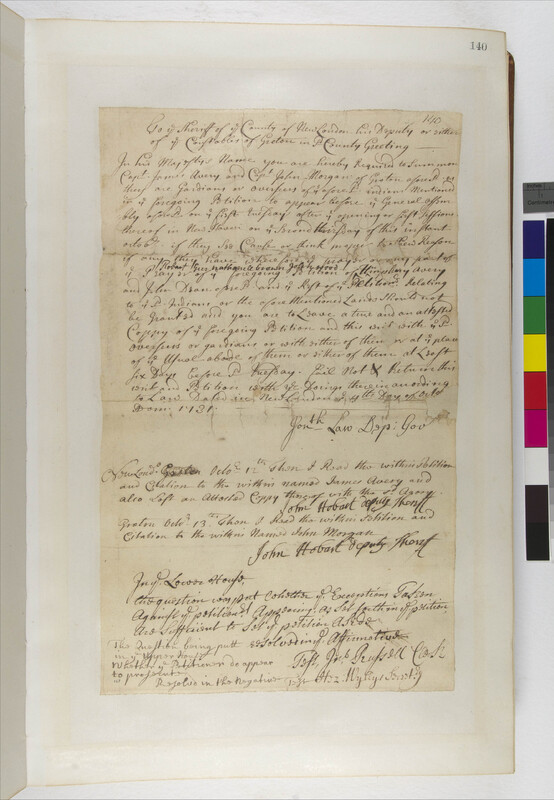 140
140
To ye Sheriff of ye County of New London his Deputy or either
of ye Constables of Groton in sd County Greeting
In his Majestys Name you are hereby Required to Summon
Capt. James Avery and Capt John Morgan of Groton aforesd
they are Gardians or overseers of ye aforesd Indians Mentioned
in ye foregoing Petition to appear before ye General Assem
bly at ye first Thursday after ye opening or first Sessions
thereof in New Haven on ye Second Thursday of this instant
octobr if they See Cause or think meet to shew Reason
if any they have wherefore ye prayer or any part of
ye foregoing Petition of Humphrey Avery
Robert
and John Dean and ye Rest of ye Petitioners Relating
to ye sd Indians or the afore Mentioned Lands should not
be Granted and you are to Leave a true and an attested
Coppy of ye foregoing Petition and this writ with ye sd
overseers or gardians or with either of them or at ye place
of ye Usual abode of them or either of them at Least
six Days before sd Thursday. Fail Not & Return this
writ and Petition with ye Doings therein according
to Law Dated in New London ye Day of Octo
Dom: 1731.
Jonth Law Dep: Govr
New Lond. Octor 12th Then I Read the within Petition
and Citation to the within named James Avery and
also Left an Attested Coppy thereof with the sd Avery
John Hobart deputy Sheriff
Groton Octor 13th Then I Read the within Petition and
Citation to the within Named John Morgan
John Hobart deputy Sheriff
In ye Lower House
the question was put whether ye Exceptions Taken
Against ye petitioners Appearing as Set forth in ye petition
Are Sufficient to Set ye petition Aside
Resolved in ye Affirmative
Test. Russell Clerk
The Question being putt
in ye Upper House
Whether ye Petitioners do appear
to prosecute
Resolvd in the Negative
Test Hez. Wyllys Secretry